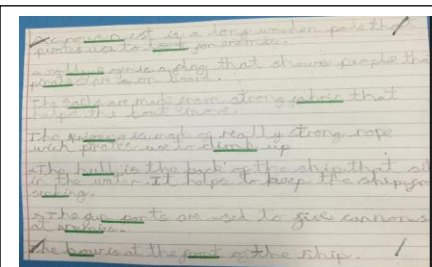 nest is a long wooden pole that
pirates use to look for enemies.
a flag that shows people the
is on board.
The sails are made from strong fabric that
helps the boat move.
The is made of really strong rope
wich pirates use to climb up
The hull is the part of the ship that sits
in the water. It helps to keep the ship from
sinking.
The gun ports are used to fire cannons
at enemies.
The bow is at the front of the ship.